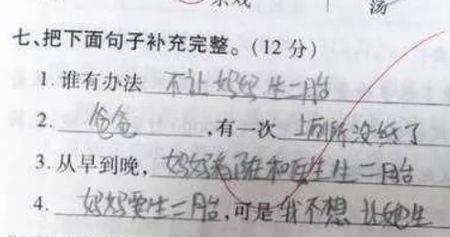 七、把下面句子补充完整。(12分)
1.谁有办法 不让妈妈生二胎
2. 爸爸 ,有一次 上厕所没纸了
3.从早到晚, 妈妈 和医生生二胎
4. 妈妈要生二胎,可是我不想 让她生